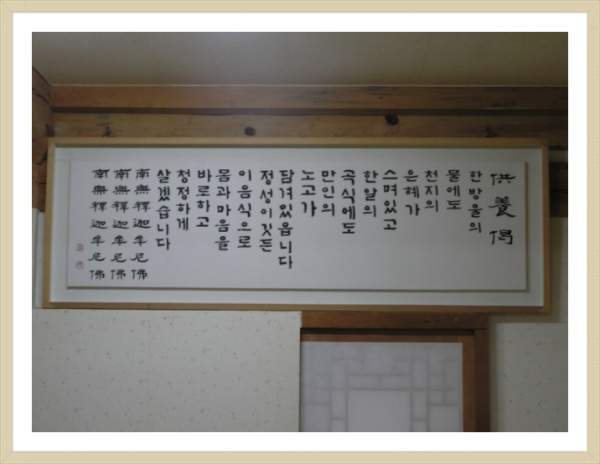 供養偈
한방울의
물에도
천지의
은혜가
스며있고
한알의
곡식에도
만인의
노고가
담겨있읍니다
정성이깃든
이음식으로
몸과마음을
바로하고
청정하게
살겠습니다
南無釋迦牟尼佛
南無釋迦牟尼佛
南無釋迦牟尼佛